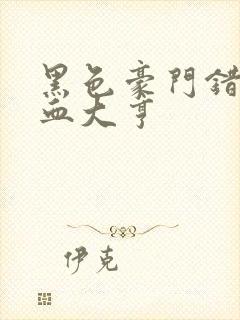 黑色豪門錯
血大亨
伊克